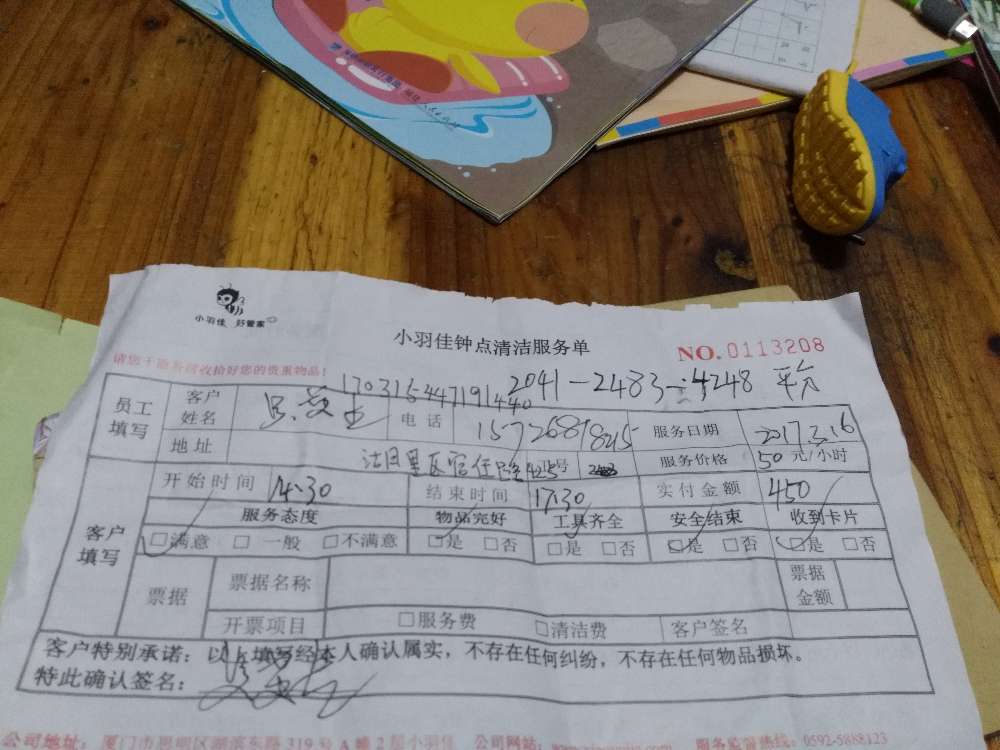 小羽佳 好管家
小羽佳钟点清洁服务单
NO.0113208
请您于服务前收拾好您的贵重物品!
170315447191440
2041-2483-4248
员工填写
客户姓名
电话
服务日期 2017.3.16
地址
号
服务价格 50元/小时
客户填写
开始时间 14:30 结束时间 17:30 实付金额 450
服务态度 物品完好 工具齐全 安全结束 收到卡片
□满意 □一般 □不满意 □是 □否 □是 □否 □是 □否 □是 □否
票据 票据名称 票据金额
开票项目 □服务费 □清洁费 客户签名
客户特别承诺:以上填写经本人确认属实,不存在任何纠纷,不存在任何物品损坏。
特此确认签名:
公司地址:厦门市思明区湖滨东路319号A幢2层小羽佳 公司网站: 服务监督热线:0592-5888123